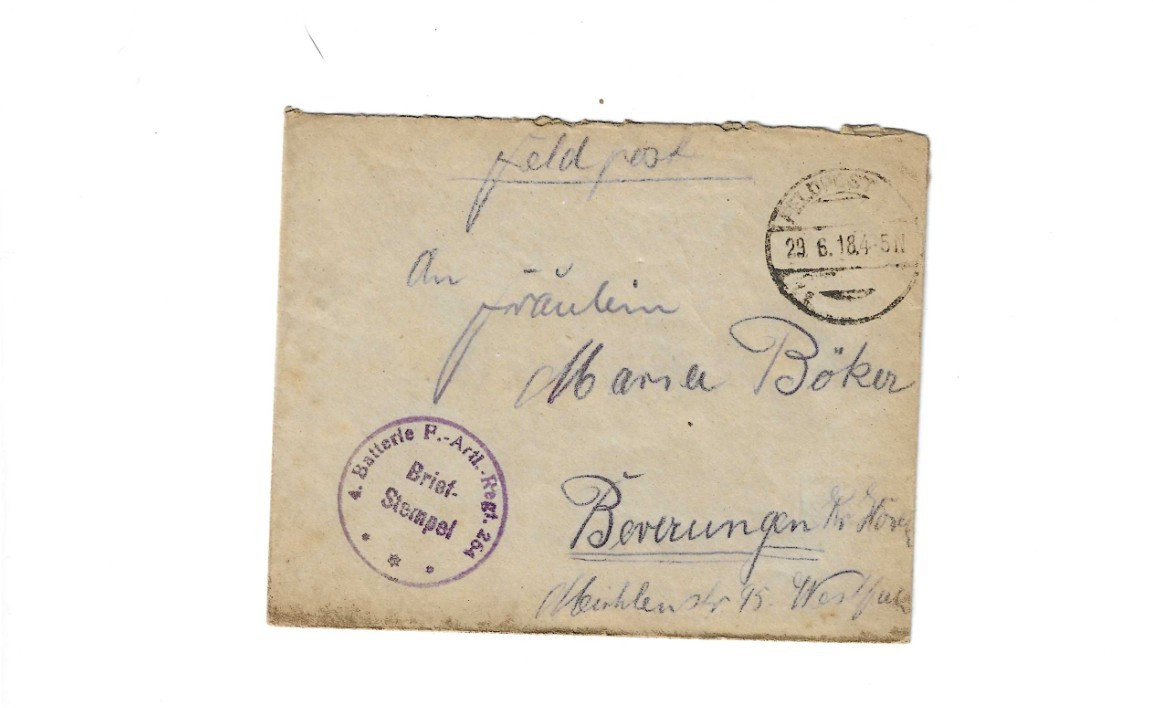 Feldpost
FELDPOST
29. 6. 18. 4-5 N
An
Fräulein
Maria Böker
4. Batterie F.-Artl.-Regt. 264
Brief-
Stempel
Beverungen Kr. Höx
Mühlenstr 45. Westfal